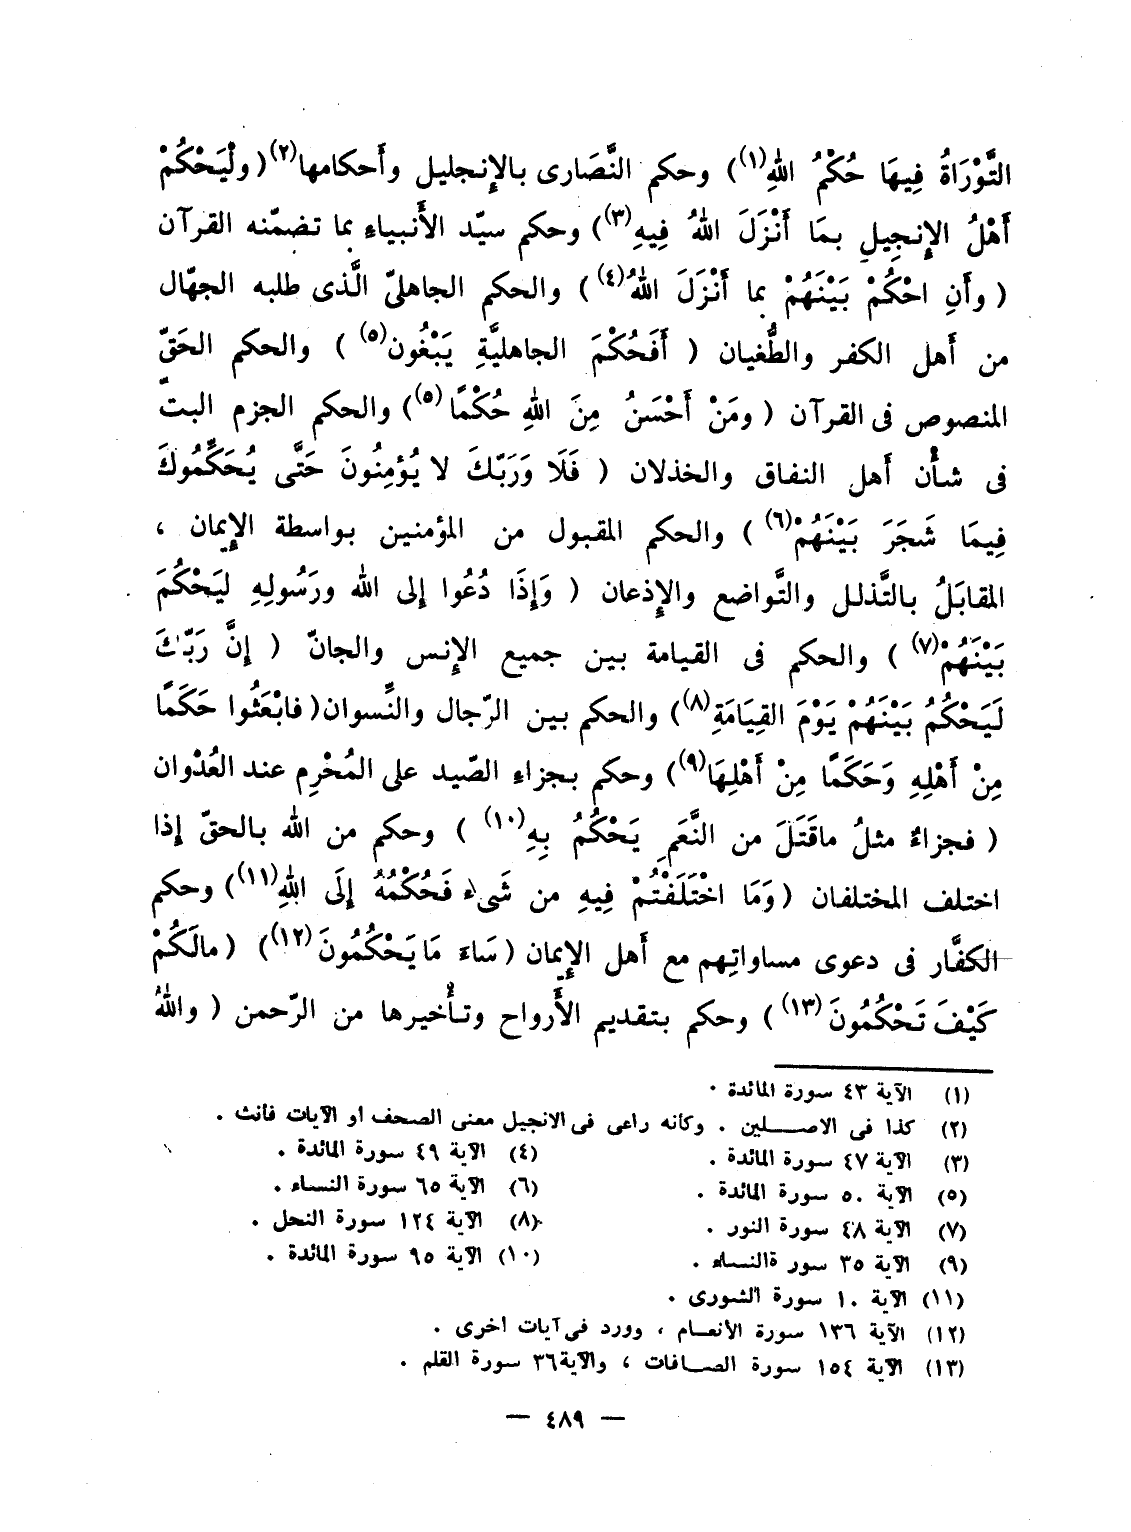 التَّوْرَاةُ فِيهَا حُكْمُ اللهِ(١)) وحكم النَّصَارى بالإنجليل وأحكامها(٢)(ولْيَحْكُمْ
أَهْلُ الإنجِيلِ بمَا أَنْزَلَ اللهُ فِيهِ(٣)) وحكم سيّد الأَنبياء بما تضمّنه القرآن
( وأَنِ احْكُمْ بَيْنَهُمْ بما أَنْزَلَ اللهُ(٤)) والحكم الجاهليّ الَّذى طلبه الجهّال
من أَهل الكفر والطُّغيان ( أَفَحُكْمَ الجاهليَّةِ يَبْغُون(٥) ) والحكم الحَقّ
المنصوص فى القرآن ( ومَنْ أَحْسَنُ مِنَ اللهِ حُكْمًا(٥)) والحكم الجزم البتّ
فى شأْن أَهل النفاق والخذلان ( فَلَا وَرَبّكَ لا يُؤمِنُونَ حَتَّى يُحَكِّمُوكَ
فِيمَا شَجَرَ بَيْنَهُمْ(٦) ) والحكم المقبول من المؤمنين بواسطة الإيمان ،
المقابَلُ بالتَّذلل والتَّواضع والإذعان ( وَإِذَا دُعُوا إلى الله ورَسُولِهِ لِيَحْكُمَ
بَيْنَهُمْ(٧) ) والحكم فى القيامة بين جميع الإنس والجانّ ( إنَّ رَبّكَ
لَيَحْكُمُ بَيْنَهُمْ يَوْمَ القِيَامَةِ(٨)) والحكم بين الرّجال والنِّسوان(فابْعَثُوا حَكَمًا
مِنْ أَهْلِهِ وَحَكَمًا مِنْ أَهْلِهَا(٩)) وحكم بجزاء الصّيد على المُحْرِم عند العُدْوان
( فجزاءٌ مثلُ ماقَتَلَ من النَّعَمِ يَحْكُمُ بِهِ(١٠) ) وحكم من الله بالحقّ إذا
اختلف المختلفان (وَمَا اخْتَلَفْتُمْ فِيهِ من شَىء فَحُكْمُهُ إِلَى اللهِ(١١)) وحكم
الكفَّار فى دعوى مساواتِهم مع أَهل الإيمان (سَاءَ مَا يَحْكُمُونَ(١٢)) (مالَكُمْ
كَيْفَ تَحْكُمُونَ(١٣) ) وحكم بتقديم الأَرواح وتأْخيرها من الرّحمن ( واللهُ
(١) الآية ٤٣ سورة المائدة .
(٢) كذا فى الاصلين . وكانه راعى فى الانجيل معنى الصحف او الآيات فأنث .
(٣) الآية ٤٧ سورة المائدة . (٤) الآية ٤٩ سورة المائدة .
(٥) الآية ٥٠ سورة المائدة . (٦) الآية ٦٥ سورة النساء .
(٧) الآية ٤٨ سورة النور . (٨) الآية ١٢٤ سورة النحل .
(٩) الآية ٣٥ سور ةالنساء . (١٠) الآية ٩٥ سورة المائدة .
(١١) الآية ١٠ سورة الشورى .
(١٢) الآية ١٣٦ سورة الأنعام ، وورد فى آيات اخرى .
(١٣) الآية ١٥٤ سورة الصافات ، والآية٣٦ سورة القلم .
— ٤٨٩ —